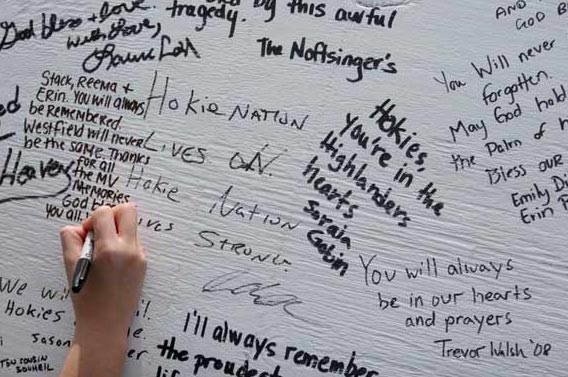 tragedy.
by this awful
God bless + love.
With Love,
The Noftsinger's
AND
GOD B
You Will never
forgotten.
May God hold
the Palm of h
Bless our
Emily Di
Erin
Stack, Reema +
Erin. You will always
be REMEMBERED.
Westfield will never
be the same. Thanks
for all
the MV
MEMORIES
God
you all.
Heavens
Hokie NATION
LIVES ON.
Hokie
Nation
Lives
STRONG.
Hokies,
You're in the
Highlanders
hearts
Saraia
Gabin
You will always
be in our hearts
and prayers
Trevor Walsh '08
We wi
Hokies
Jason
TSU COUSIN
SOUHEIL
I'll always remember
the proudest
life